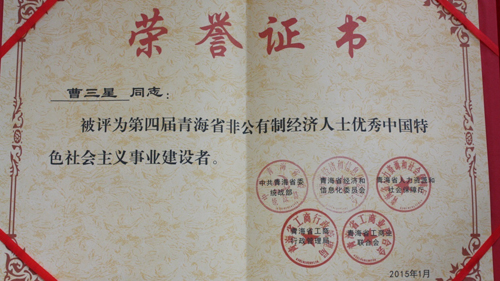 荣誉证书
曹三星 同志：
被评为第四届青海省非公有制经济人士优秀中国特
色社会主义事业建设者。
中共青海省委
统战部
青海省经济和
信息化委员会
青海省人力资源和
社会保障厅
青海省工商
行政管理局
青海省工商业
联合会
2015年1月